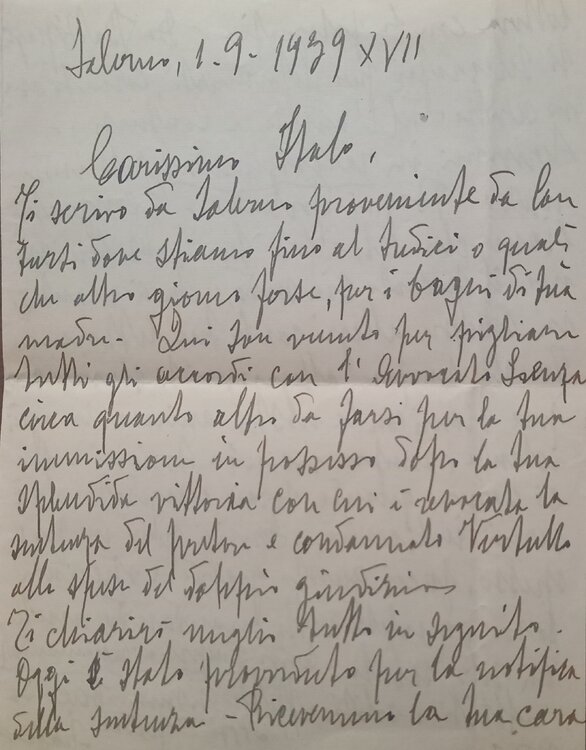 Salerno, 1-9-1939 XVII
Carissimo Italo,
Ti scrivo da Salerno proveniente da Con
tursi dove stiamo fino al tredici o qual
che altro giorno forse, per i bagni di tua
madre. Qui son venuto per pigliare
tutti gli accordi con l'Avvocato
circa quanto altro da farsi per la tua
immissione in possesso dopo la tua
splendida vittoria con cui è revocata la
sentenza del pretore e condannato
alle spese del doppio giudizio
Ti chiarirò meglio tutto in seguito.
Oggi è stato provveduto per la notifica
della sentenza - Ricevemmo la tua cara